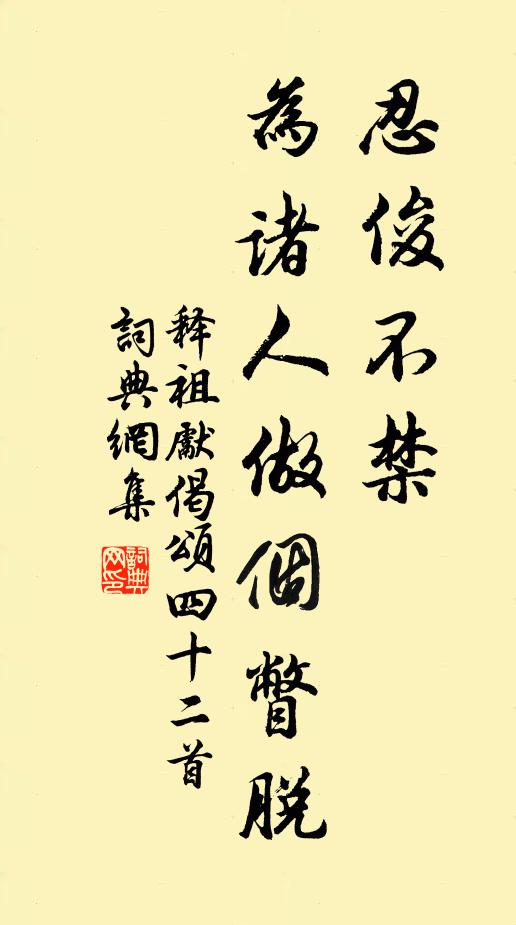 忍俊不禁
為諸人做個瞥脱
释祖獻偈頌四十二首
詞典網集
詞典网印